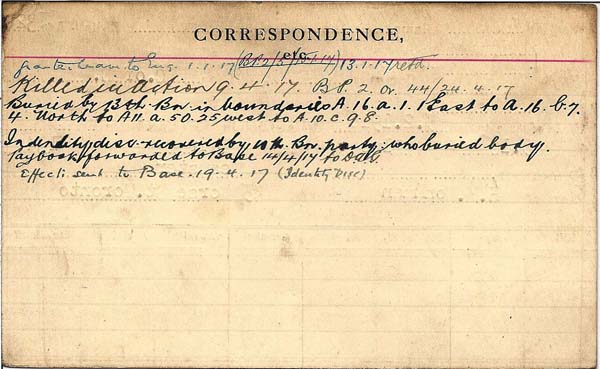 CORRESPONDENCE,
etc.
granted leave to Eng. 1.1.17 (BP2/5/15.1.17) 13.1.17 retd.
Killed in Action 9.4.17. B P. 2. Or. 44/24.4.17
Buried by 13th. Bn. in boundaries A. 16. a. 1. 1 East to A. 16. b. 7.
4. North to A11. a. 50.25, west to A. 10. c. 9.8.
Indentity disc recovered by 10th. Bn. party. who buried body.
Paybook forwarded to Base 14/4/17 to
Effects sent to Base. 19.4.17 (Identity Disc)